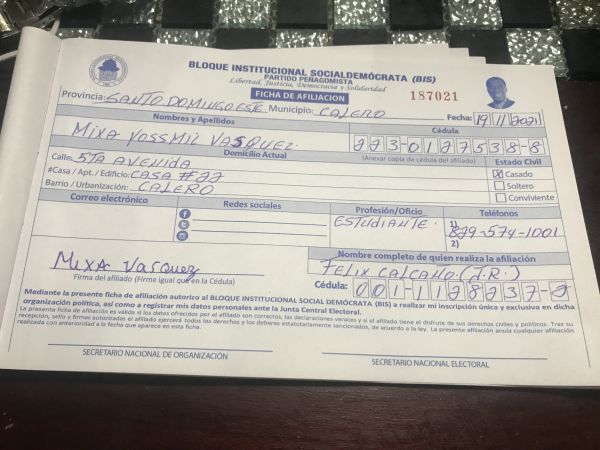 BLOQUE INSTITUCIONAL SOCIALDEMÓCRATA (BIS)
PARTIDO PEÑAGOMISTA
Libertad, Justicia, Democracia y Solidaridad
FICHA DE AFILIACION
187021
Provincia: SANTO DOMINGO ESTE Municipio: CALERO Fecha: 19/11/2021
Nombres y Apellidos Cédula
MIXA YOSSMIL VASQUEZ. 223-0127538-8
Domicilio Actual (Anexar copia de cédula del afiliado) Estado Civil
Calle: 5TA AVENIDA Casado
#Casa / Apt. / Edificio: CASA #22 Soltero
Barrio / Urbanización: CALERO Conviviente
Correo electrónico Redes sociales Profesión/Oficio Teléfonos
ESTUDIANTE. 1) 829-574-1001
2)
Nombre completo de quien realiza la afiliación
MIXA VASQUEZ FELIX CALCAÑO.(J.R.)
Firma del afiliado (Firme igual que en la Cédula) Cédula: 001-1128237-2
Mediante la presente ficha de afiliación autorizo al BLOQUE INSTITUCIONAL SOCIAL DEMÓCRATA (BIS) a realizar mi inscripción única y exclusiva en dicha
organización política, así como a registrar mis datos personales ante la Junta Central Electoral.
La presente ficha de afiliación es válida si los datos ofrecidos por el afiliado son correctos, las declaraciones veraces y si el afiliado tiene el disfrute de sus derechos civiles y políticos. Tras su
recepción, sello y firmas autorizadas el afiliado ejercerá todos los derechos y los deberes estatutariamente sancionados, de acuerdo a la ley. La presente afiliación anula cualquier afiliación
realizada con anterioridad a la fecha que aparece en esta ficha.
SECRETARIO NACIONAL DE ORGANIZACIÓN SECRETARIO NACIONAL ELECTORAL